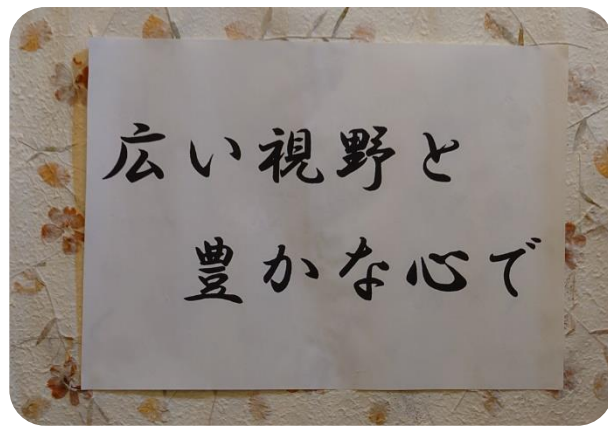 広い視野と
豊かな心で